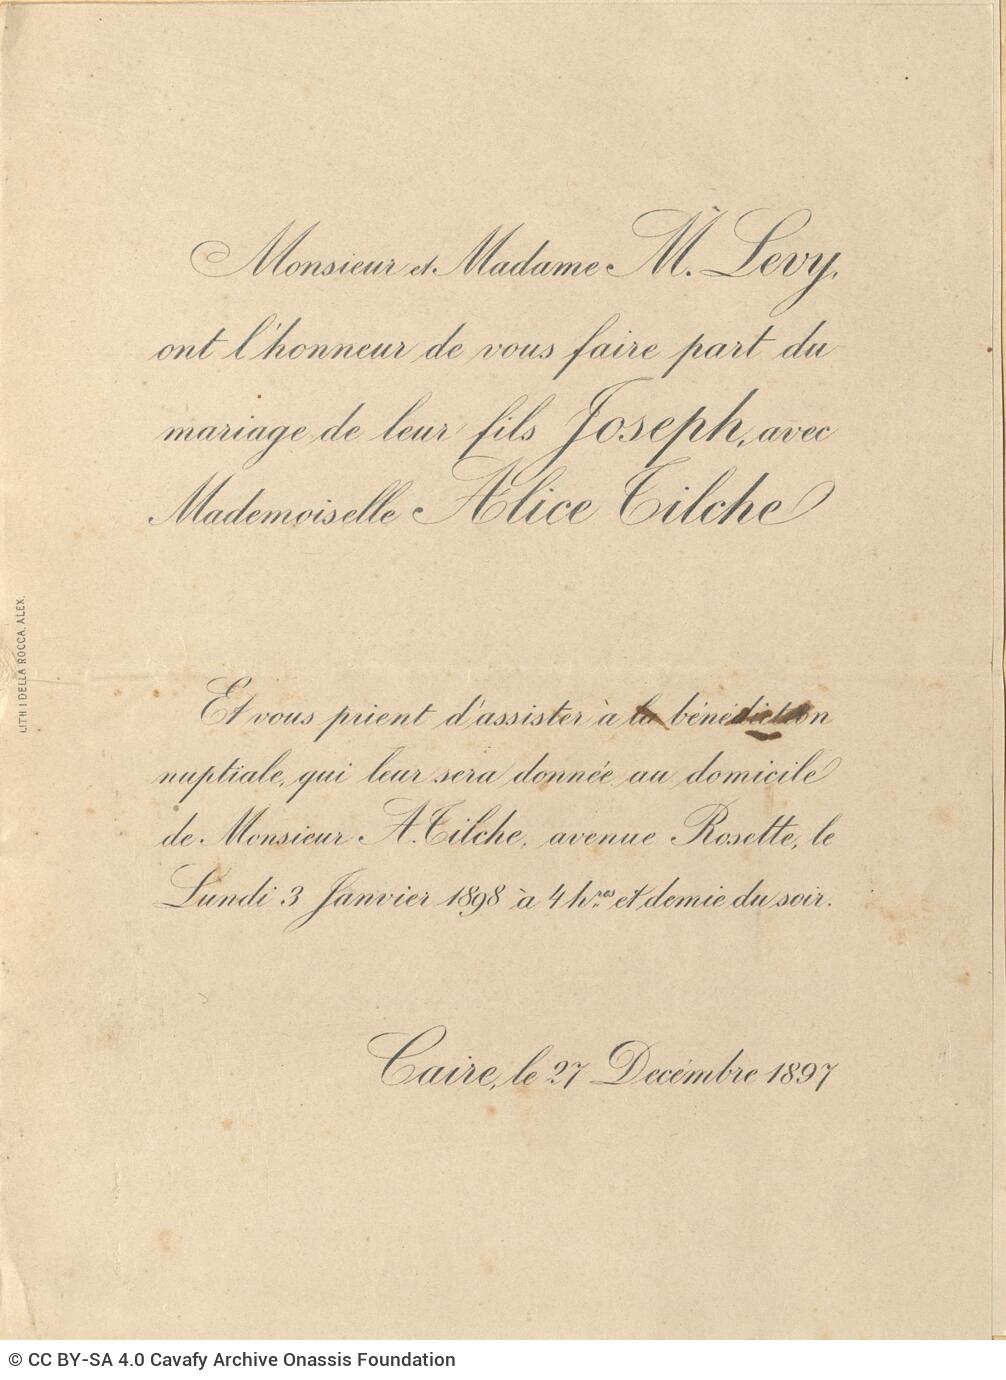 Monsieur et Madame M. Levy,
ont l'honneur de vous faire part du
mariage de leur fils Joseph, avec
Mademoiselle Alice Tilche
Et vous prient d'assister à la bénédiction
nuptiale, qui leur sera donnée au domicile
de Monsieur A. Tilche, avenue Rosette, le
Lundi 3 Janvier 1898 à 4 hres et demie du soir.
Caire, le 27 Decémbre 1897
LITH I DELLA ROCCA, ALEX.
© CC BY-SA 4.0 Cavafy Archive Onassis Foundation